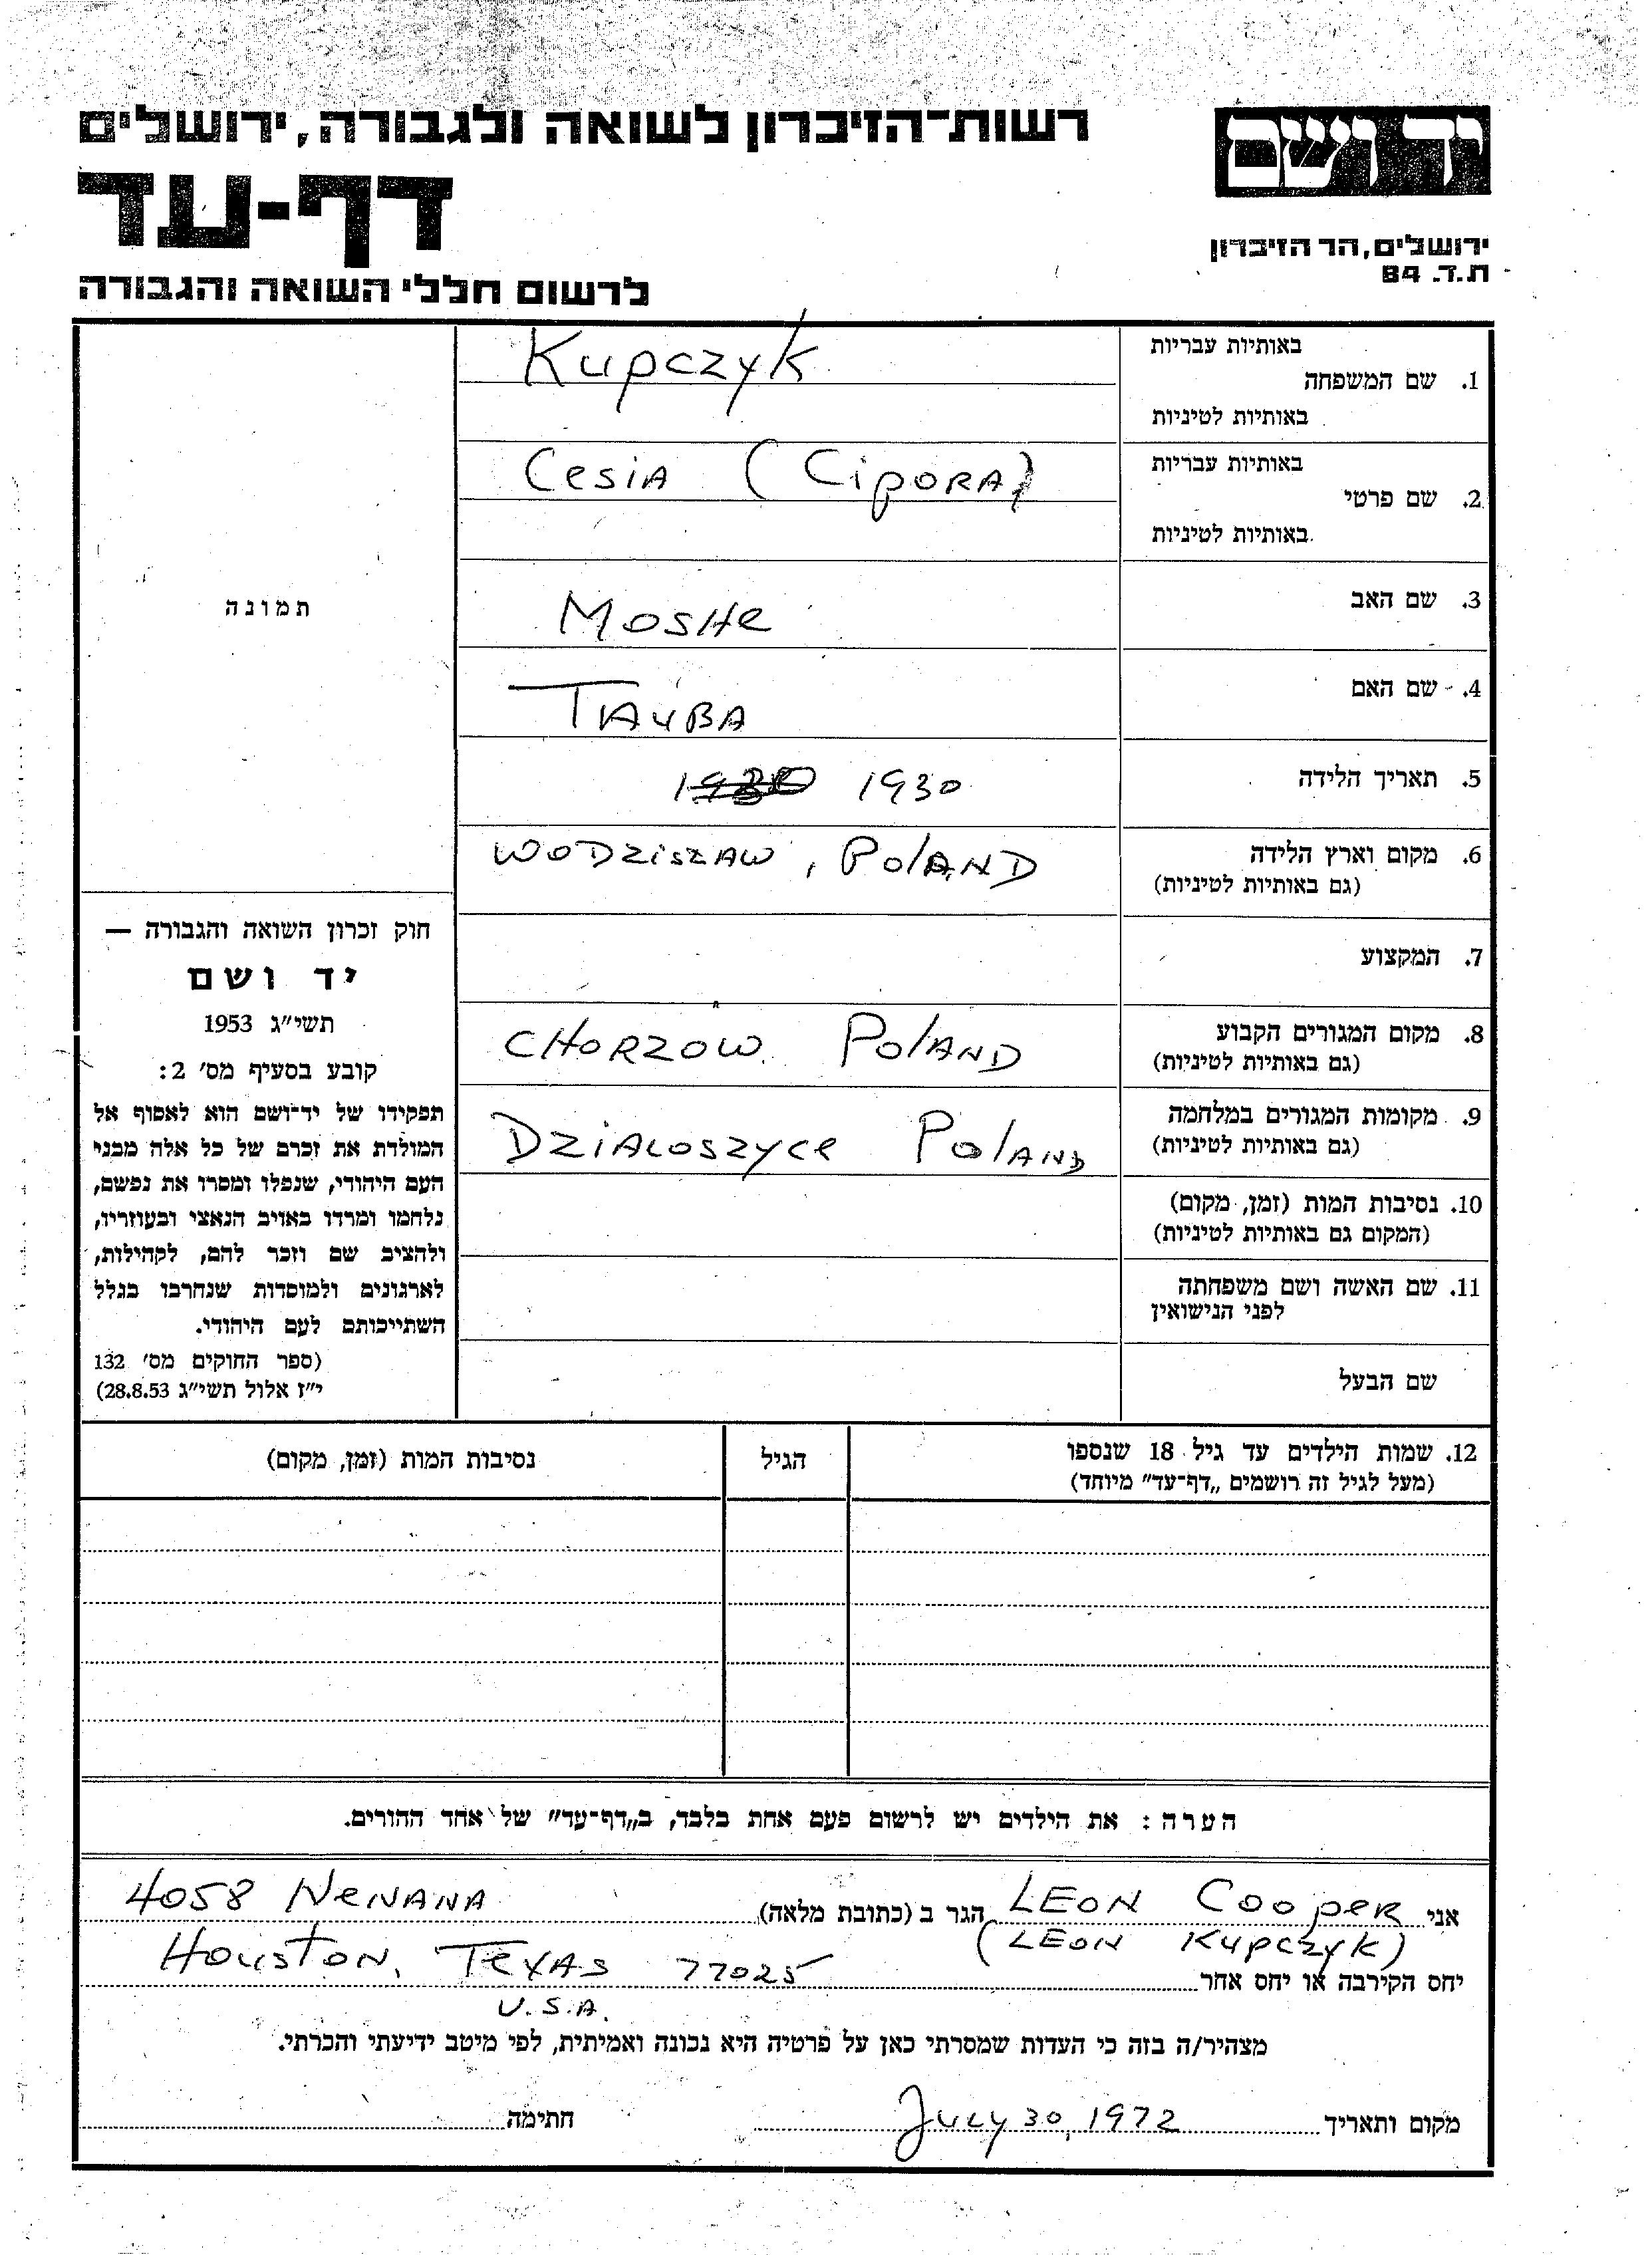 יד ושם
רשות-הזיכרון לשואה ולגבורה, ירושלים
דף-עד
ירושלים, הר הזיכרון
ת.ד. 84
לרשום חללי השואה והגבורה
באותיות עבריות
1. שם המשפחה
Kupczyk
באותיות לטיניות
באותיות עבריות
2. שם פרטי
Cesia (Cipora)
באותיות לטיניות
3. שם האב
Moshe
4. שם האם
Tauba
5. תאריך הלידה
1930
6. מקום וארץ הלידה
(גם באותיות לטיניות)
WODZISZAW, POLAND
7. המקצוע
8. מקום המגורים הקבוע
(גם באותיות לטיניות)
CHORZOW. POLAND
9. מקומות המגורים במלחמה
(גם באותיות לטיניות)
DZIALOSZYCE POLAND
10. נסיבות המות (זמן, מקום)
(המקום גם באותיות לטיניות)
11. שם האשה ושם משפחתה
לפני הנישואין
שם הבעל
תמונה
חוק זכרון השואה והגבורה —
יד ושם
תשי״ג 1953
קובע בסעיף מס׳ 2:
תפקידו של יד־ושם הוא לאסוף אל
המולדת את זכרם של כל אלה מבני
העם היהודי, שנפלו ומסרו את נפשם,
נלחמו ומרדו באויב הנאצי ובעוזריו,
ולהציב שם וזכר להם, לקהילות,
לארגונים ולמוסדות שנחרבו בגלל
השתייכותם לעם היהודי.
(ספר החוקים מס׳ 132
י״ז אלול תשי״ג 28.8.53)
12. שמות הילדים עד גיל 18 שנספו
(מעל לגיל זה רושמים „דף־עד״ מיוחד)
הגיל
נסיבות המות (זמן, מקום)
הערה: את הילדים יש לרשום פעם אחת בלבד, ב„דף־עד״ של אחד ההורים.
אני LEON COOPER הגר ב (כתובת מלאה) 4058 NENANA
(LEON KUPCZYK)
יחס הקירבה או יחס אחר HOUSTON, TEXAS 77025
U.S.A.
מצהיר/ה בזה כי העדות שמסרתי כאן על פרטיה היא נכונה ואמיתית, לפי מיטב ידיעתי והכרתי.
מקום ותאריך July 30, 1972 חתימה